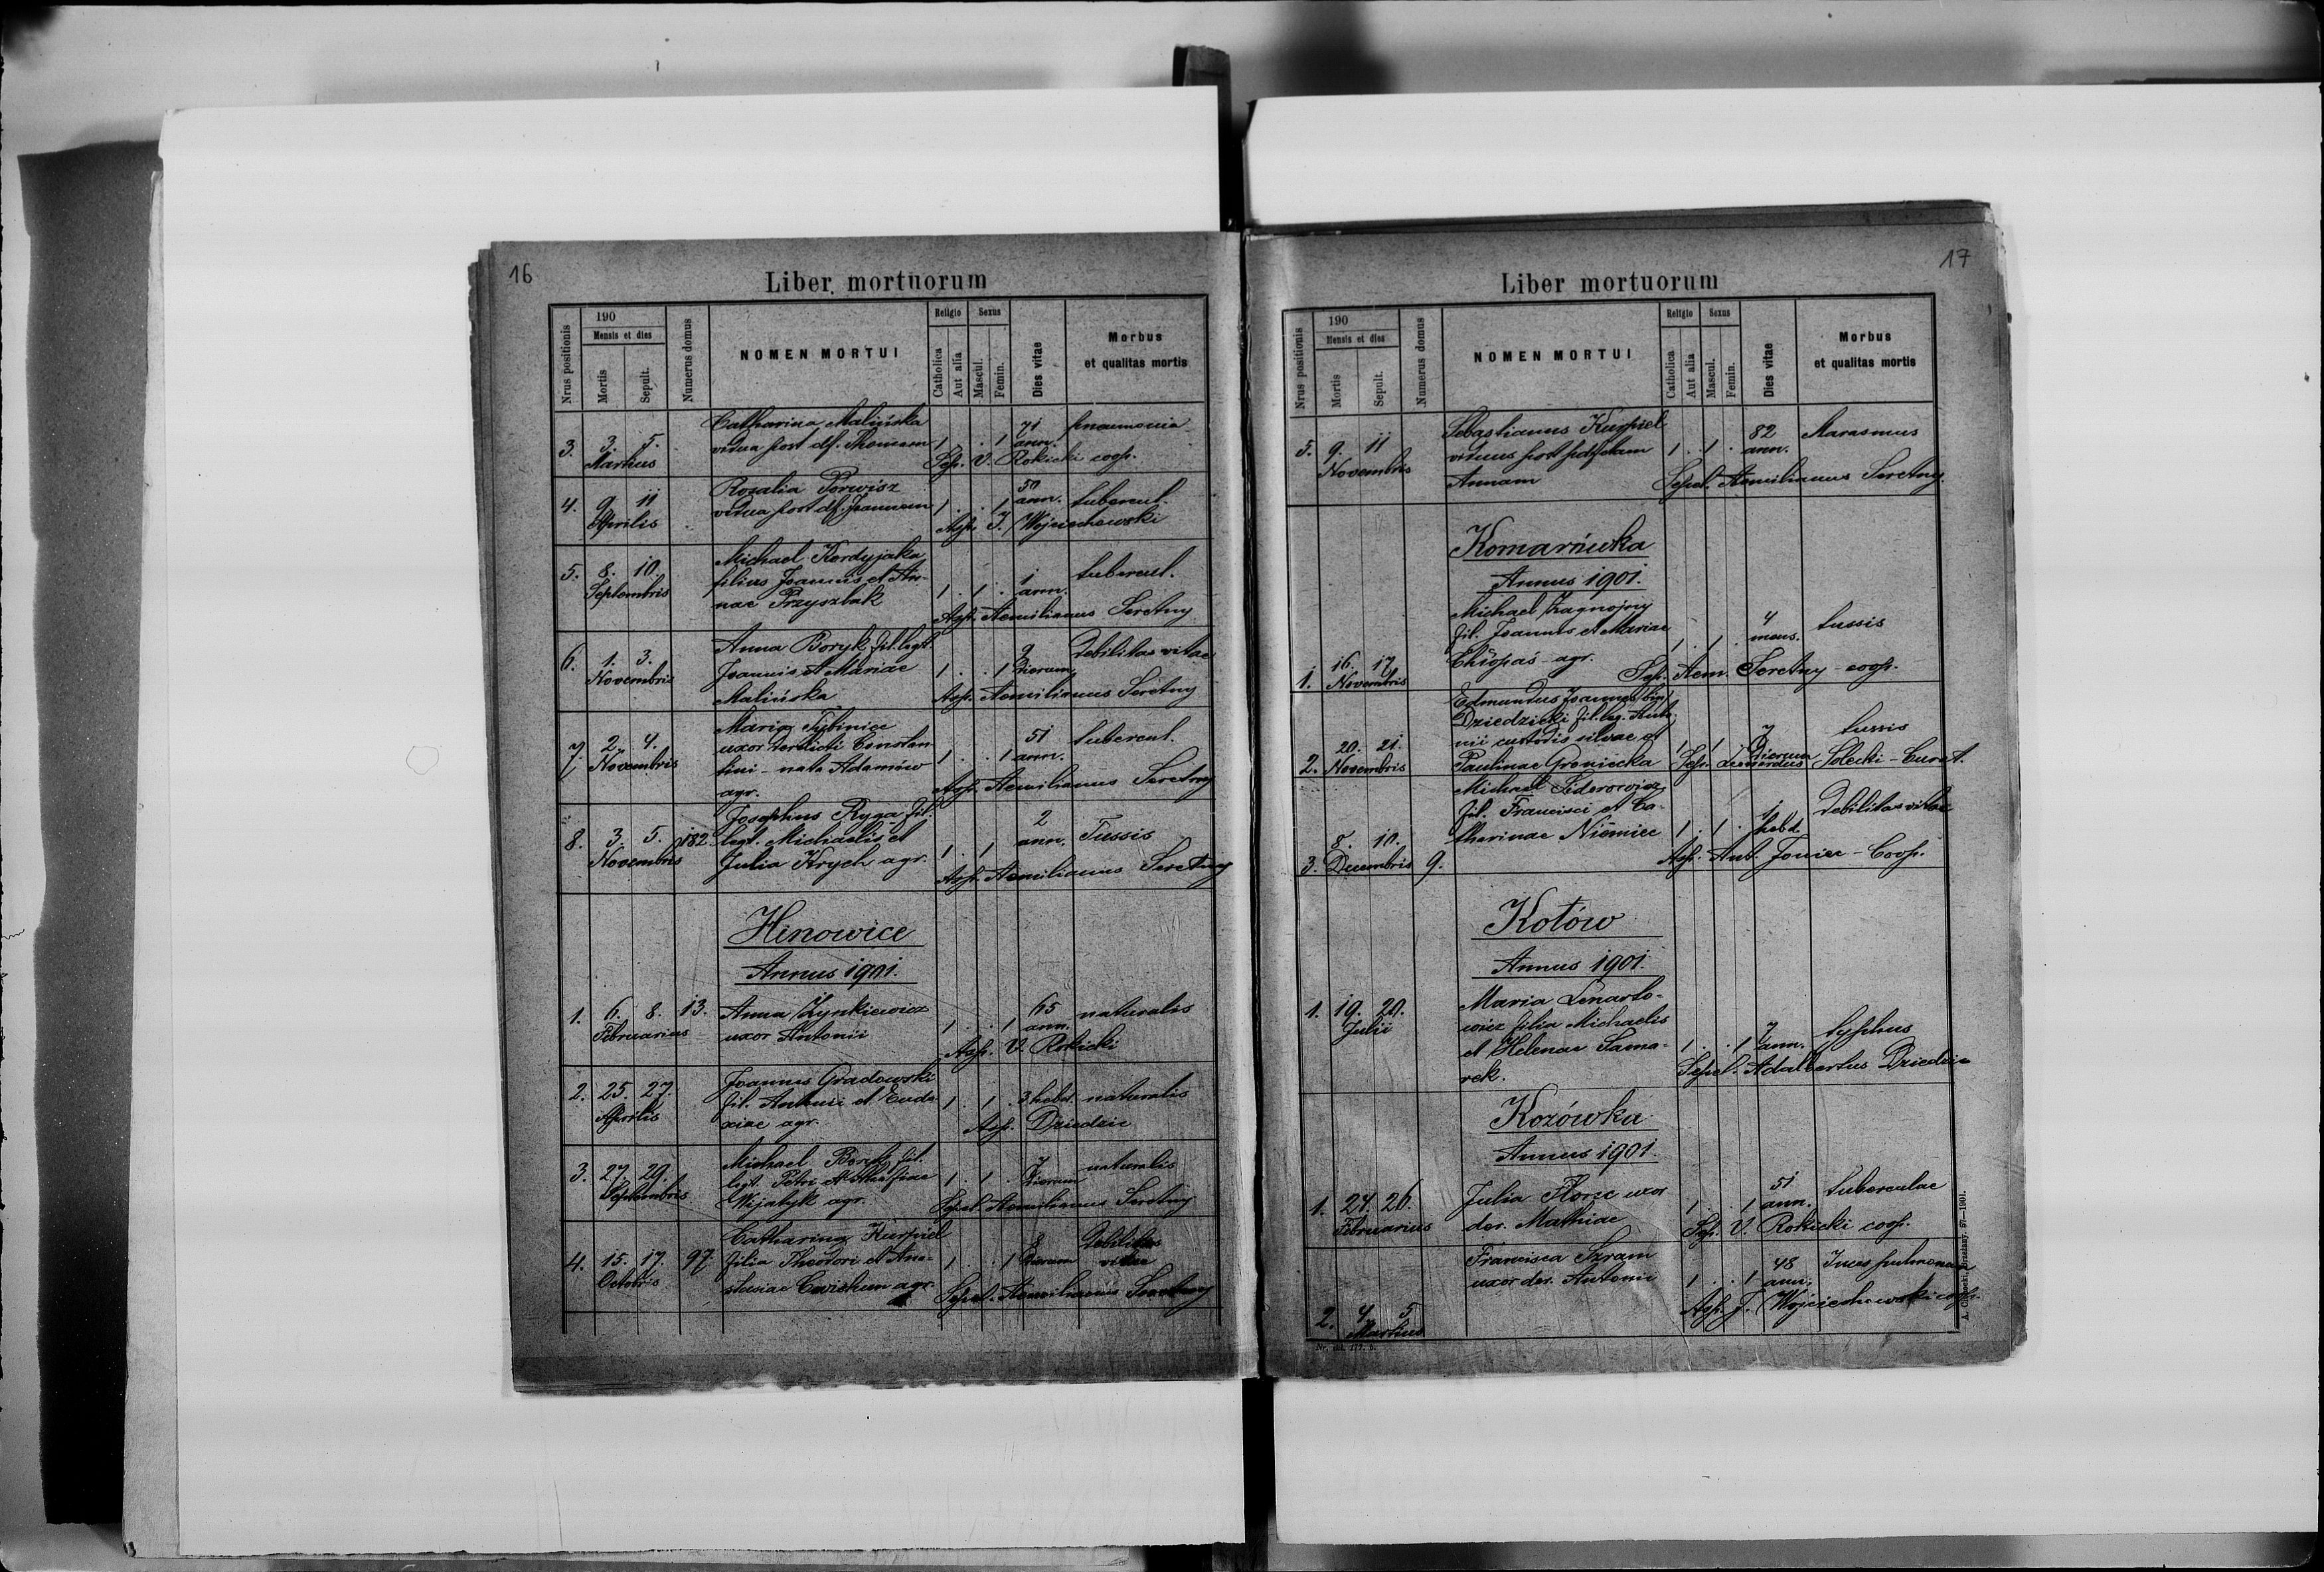 16
Liber mortuorum
Nrus positionis
190
Mensis et dies
Mortis
Sepult.
Numerus domus
NOMEN MORTUI
Religio
Catholica
Aut alia
Sexus
Mascul.
Femin.
Dies vitae
Morbus
et qualitas mortis
Catharina Malińska 71 pneumonia
3. 3. 5. vidua post df. Thomam 1 . . 1 ann.
Martius Sep. V. Rokicki coop.
Rozalia Porwisz 50
4. 9 11 vidua post df. Joannem 1 . . 1 ann. tubercul.
Aprilis Asp. J. Wojciechowski
Michael Kordyjaka
5. 8. 10. filius Joannis et An- 1 tubercul.
Septembris nae Przyszlak 1 . 1 . ann.
Asp. Aemilianus Seretny
Anna Boryk fil. legt 9 Debilitas vitae
6. 1. 3. Joannis et Mariae 1 . . 1 dierum
Novembris Malińska Asp. Aemilianus Seretny
Maria
7. 2. 4. uxor Constan 51 tubercul.
Novembris tini - nata Adamów 1 . . 1 ann.
agr. Asp. Aemilianus Seretny
Josephus Ryga fil. 2
8. 3. 5. 182. legt. Michaelis et 1 . 1 ann. Tussis
Novembris Julia Krych agr.
Asp. Aemilianus Seretny
Hinowice
Annus 1901.
1. 6. 8. 13. Anna Zynkiewicz 65 naturalis
Februarius uxor Antonii 1 . . 1 ann.
Asp. V. Rokicki
Joannes Gradowski
2. 25. 27. fil. Antonii et Eudo 1 . 1 . 3 hebd. naturalis
Aprilis xiae agr. Asp. Dziedzic
Michael fil. 7 naturalis
3. 27. 29. legt. Petri et 1 . 1 . dierum
Septembris agr. Sepel. Aemilianus Seretny
Catharina Kurpiel 8 Debilitas
4. 15. 17. 97. filia Theodori et Ana- 1 . . 1 dierum vitae
Octobris stasiae agr. Sepel. Aemilianus Seretny
17
Liber mortuorum
Nrus positionis
190
Mensis et dies
Mortis
Sepult.
Numerus domus
NOMEN MORTUI
Religio
Catholica
Aut alia
Sexus
Mascul.
Femin.
Dies vitae
Morbus
et qualitas mortis
Sebastianus Kurpiel 82 Marasmus
5. 9. 11 viduus post 1 . 1 . ann.
Novembris Annam Sepel. Aemilianus Seretny
Komarówka
Annus 1901.
Michael Zagnojny 4 tussis
fil. Joannis et Mariae 1 . 1 . mens.
1. 16. 17 agr.
Novembris Sep. Aem. Seretny - coop.
Edmundus Joannes
Dziedzicki fil. leg. Anto 7 tussis
2. 20. 21. nii custodis silvae et 1 . 1 . dierum
Novembris Paulinae Groniecka Sep. Leonardus Solecki - Curat.
Michael Fedorowicz
fil. Francisci et Ca- 1 Debilitas vitae
3. 8. 10. 9. tharinae Niemiec 1 . 1 . hebd.
Decembris Asp. Ant. Joniec - Coop.
Kotów
Annus 1901.
1. 19. 20. Maria Lenarto-
Julii wicz filia Michaelis 7 typhus
et Helenae Sama- 1 . . 1 ann.
rek. Sepel. Adalbertus Dziedzic
Kozówka
Annus 1901.
1. 24. 26. Julia uxor 51 tuberculae
Februarius der. Mathiae 1 . . 1 ann.
Sep. V. Rokicki coop.
Francisca Szram 48
uxor der. Antonii 1 . . 1 ann.
2. 4. 5. Asp. J. Wojciechowski coop.
Martius